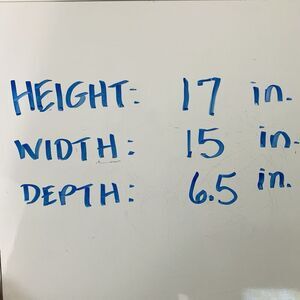 HEIGHT: 17 in.
WIDTH: 15 in.
DEPTH: 6.5 in.